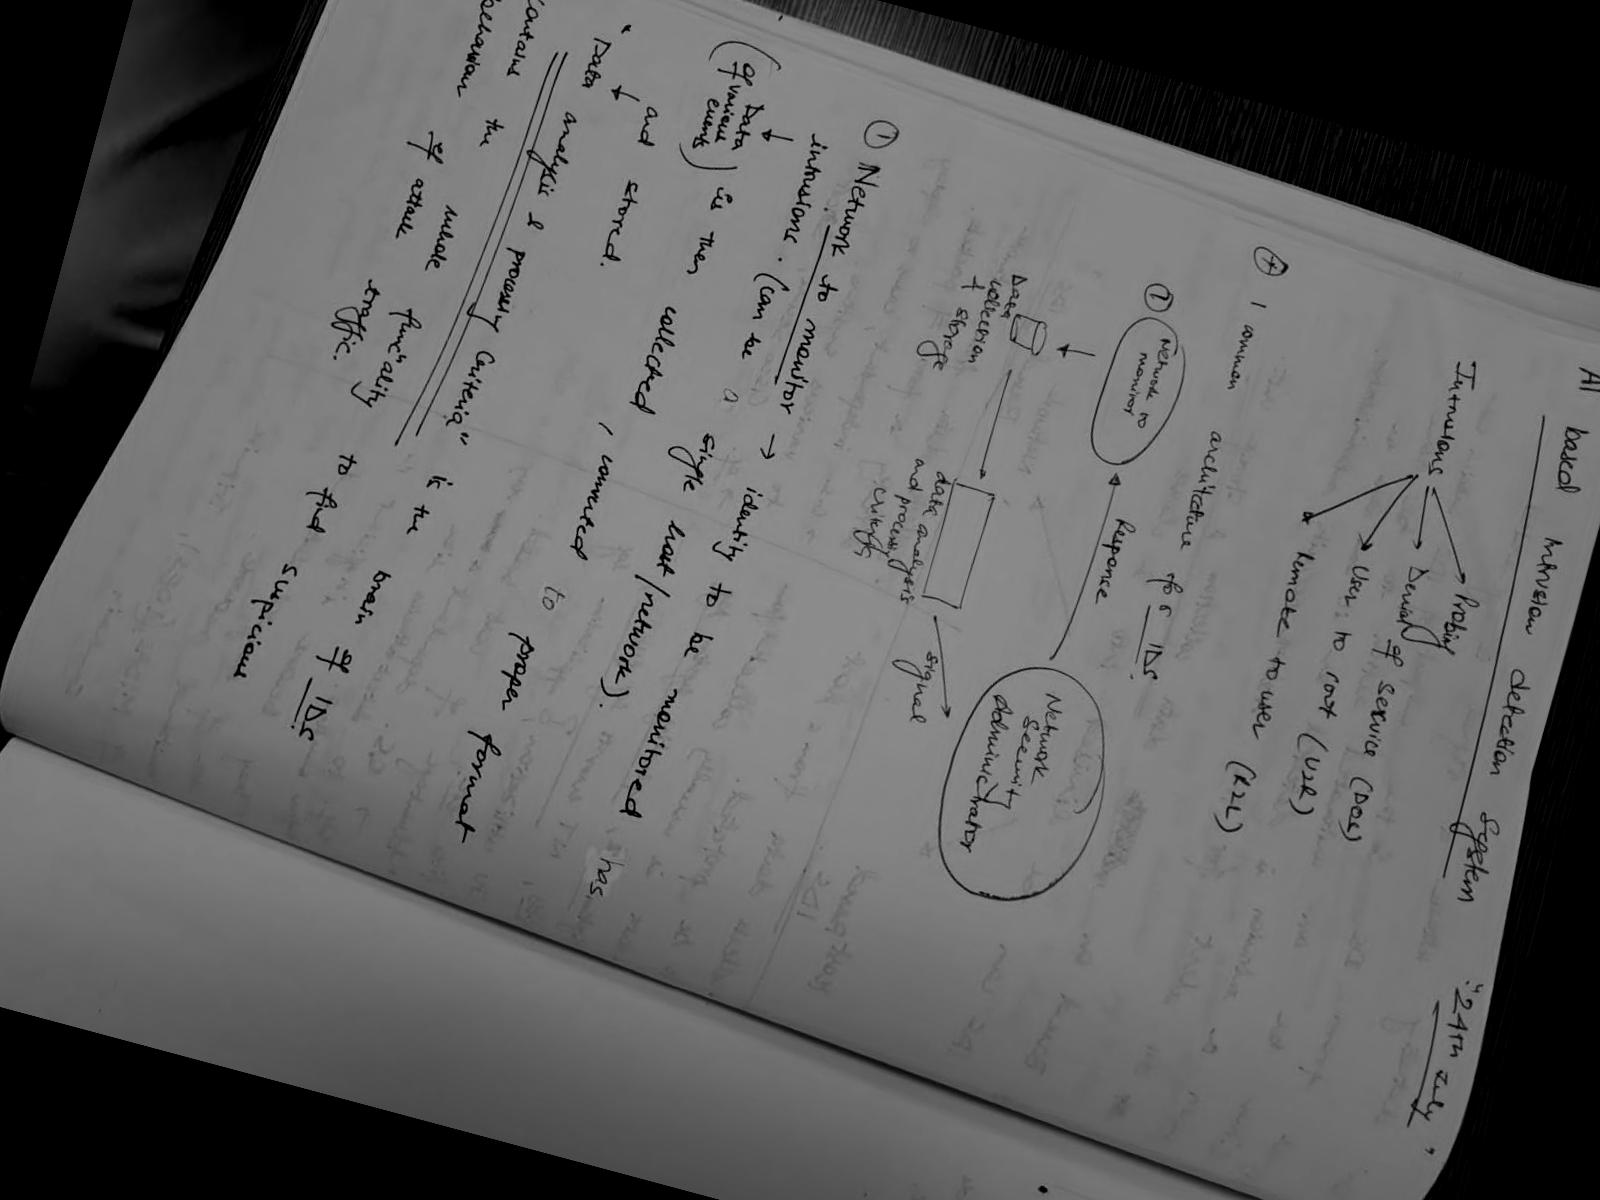 "24th July"
AI based Intrusion detection System
Intrusions
Probing
Denial of Service (DOS)
User to root (U2R)
Remote to user (R2L)
1 common architecture of IDS
Network to monitor
Response
Data collection + storage
data analysis and process criteria
signal
Network Security Administrator
① Network to monitor → identity to be monitored has
intrusions. (can be a single host/network).
Data (of various events) is then collected, converted to proper format
and stored.
"Data analysis & processing Criteria" is the brain of IDS
contains the whole func'ality to find suspicious
behaviour of attack traffic.